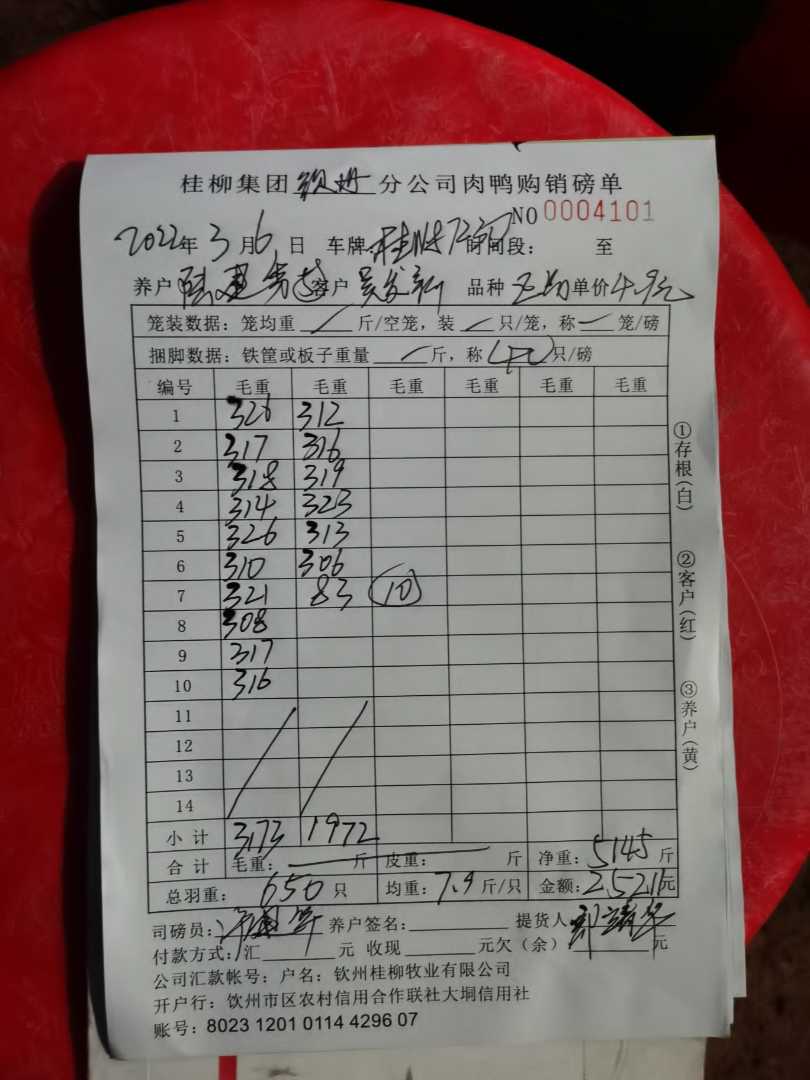 桂柳集团钦州分公司肉鸭购销磅单
NO 0004101
2022年3月6日 车牌 时间段: 至
养户 客户 品种 单价4.9元
笼装数据: 笼均重 / 斤/空笼, 装 / 只/笼, 称 一 笼/磅
捆脚数据: 铁筐或板子重量 / 斤, 称 (40) 只/磅
编号 毛重 毛重 毛重 毛重 毛重 毛重
1 326 312
2 317 316
3 318 319
4 314 323
5 326 313
6 310 306
7 321 83 (10)
8 308
9 317
10 316
11
12
13
14
小计 3173 1972
合计 毛重: 斤 皮重: 斤 净重: 5145斤
总羽重: 650只 均重: 7.9斤/只 金额: 25211元
司磅员: 养户签名: 提货人
付款方式: 汇 元 收现 元欠(余) 元
公司汇款帐号: 户名: 钦州桂柳牧业有限公司
开户行: 钦州市区农村信用合作联社大垌信用社
账号: 8023 1201 0114 4296 07
①存根(白)
②客户(红)
③养户(黄)